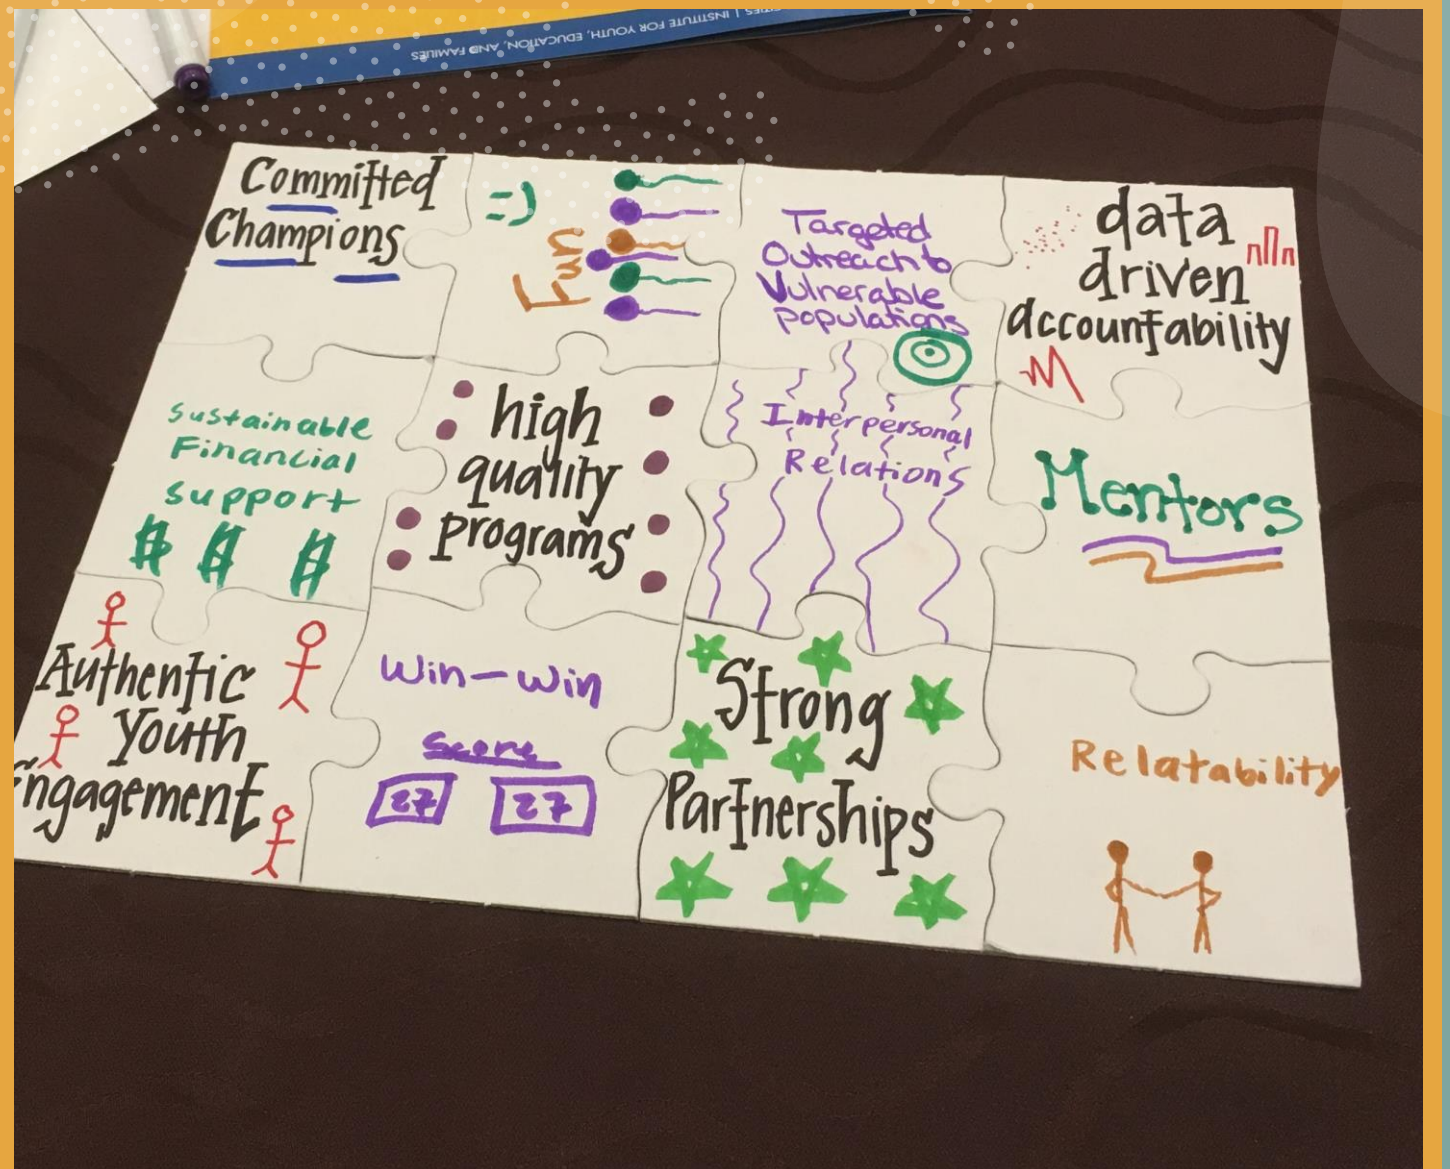 TIES | INSTITUTE FOR YOUTH, EDUCATION, AND FAMILIES
Committed
Champions
=)
Fun
Targeted
Outreach to
Vulnerable
populations
data
driven
accountability
Sustainable
Financial
support
$ $ $
high
quality
programs
Interpersonal
Relations
Mentors
Authentic
Youth
Engagement
Win-Win
Score
27 27
Strong
Partnerships
Relatability